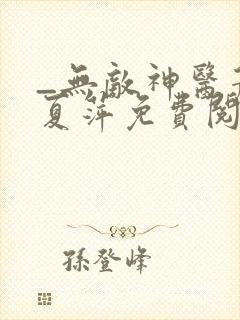 _無敵神醫
夏萍免費閱
孫登峰